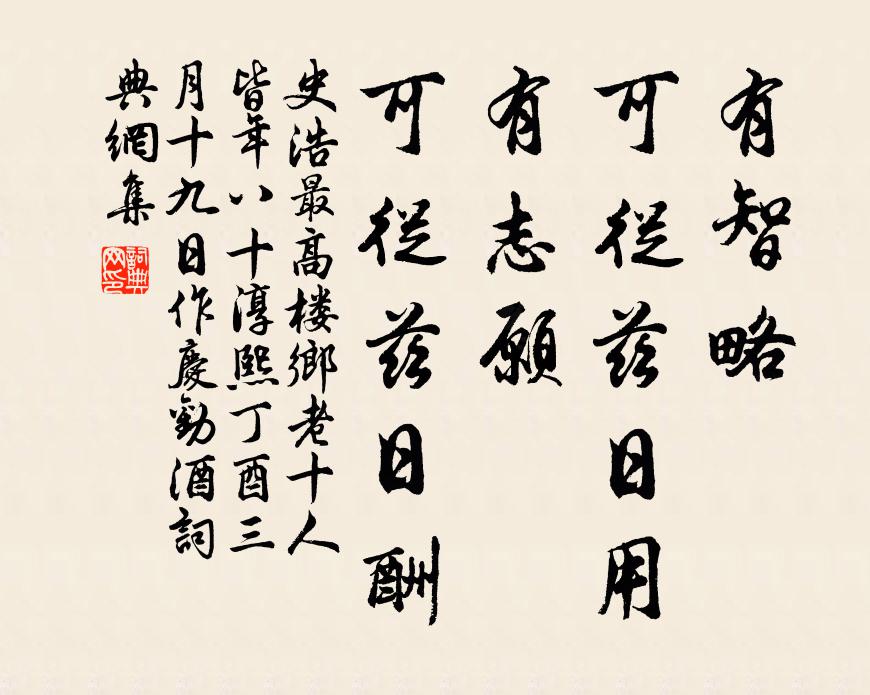 有智略
可從茲日用
有志願
可從茲日酬
史浩最高楼鄉老十人
皆年八十淳熙丁酉三
月十九日作慶勸酒詞
典網集
詞典網印